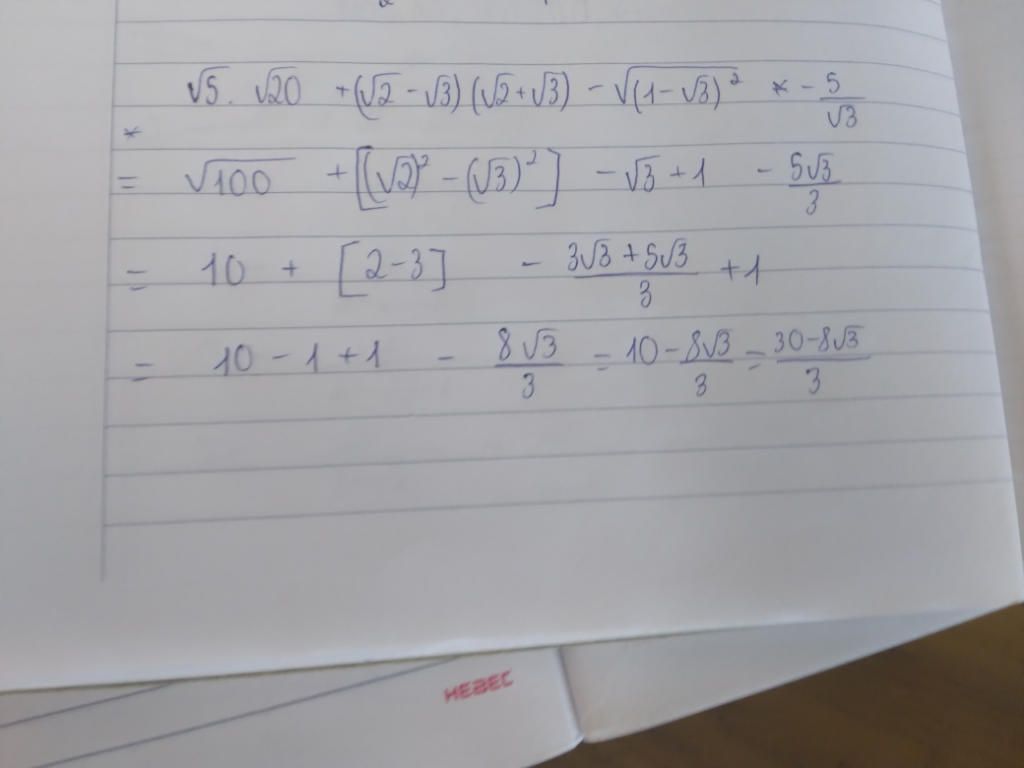 √5 . √20 + (√2 - √3) (√2 + √3) - √(1 - √3)² * - 5/√3
*
= √100 + [(√2)² - (√3)²] - √3 + 1 - 5√3/3
= 10 + [2 - 3] - 3√3 + 5√3/3 + 1
= 10 - 1 + 1 - 8√3/3 = 10 - 8√3/3 = 30 - 8√3/3
HEBEC